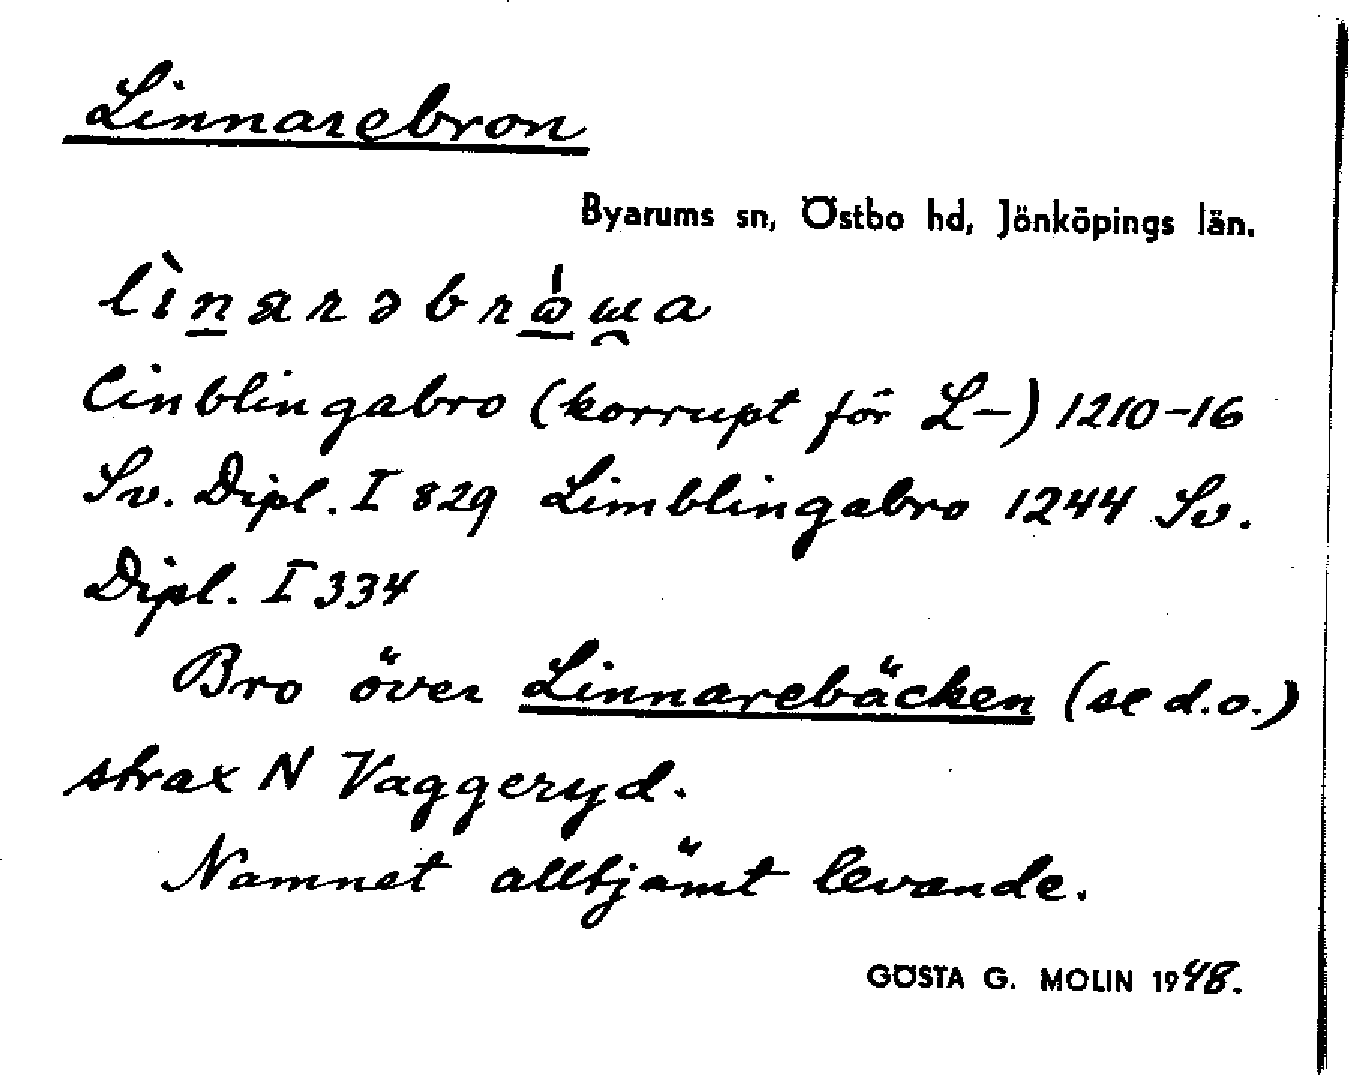 Linnarebron
Byarums sn, Östbo hd, Jönköpings län.
lìnarəbrω̍ɯa
linblingabro (korrupt för L-) 1210-16
Sv. Dipl. I 829 Limblingabro 1244 Sv.
Dipl. I 334
Bro över Linnarebäcken (se d.o.)
strax N Vaggeryd.
Namnet alltjämt levande.
GÖSTA G. MOLIN 1948.